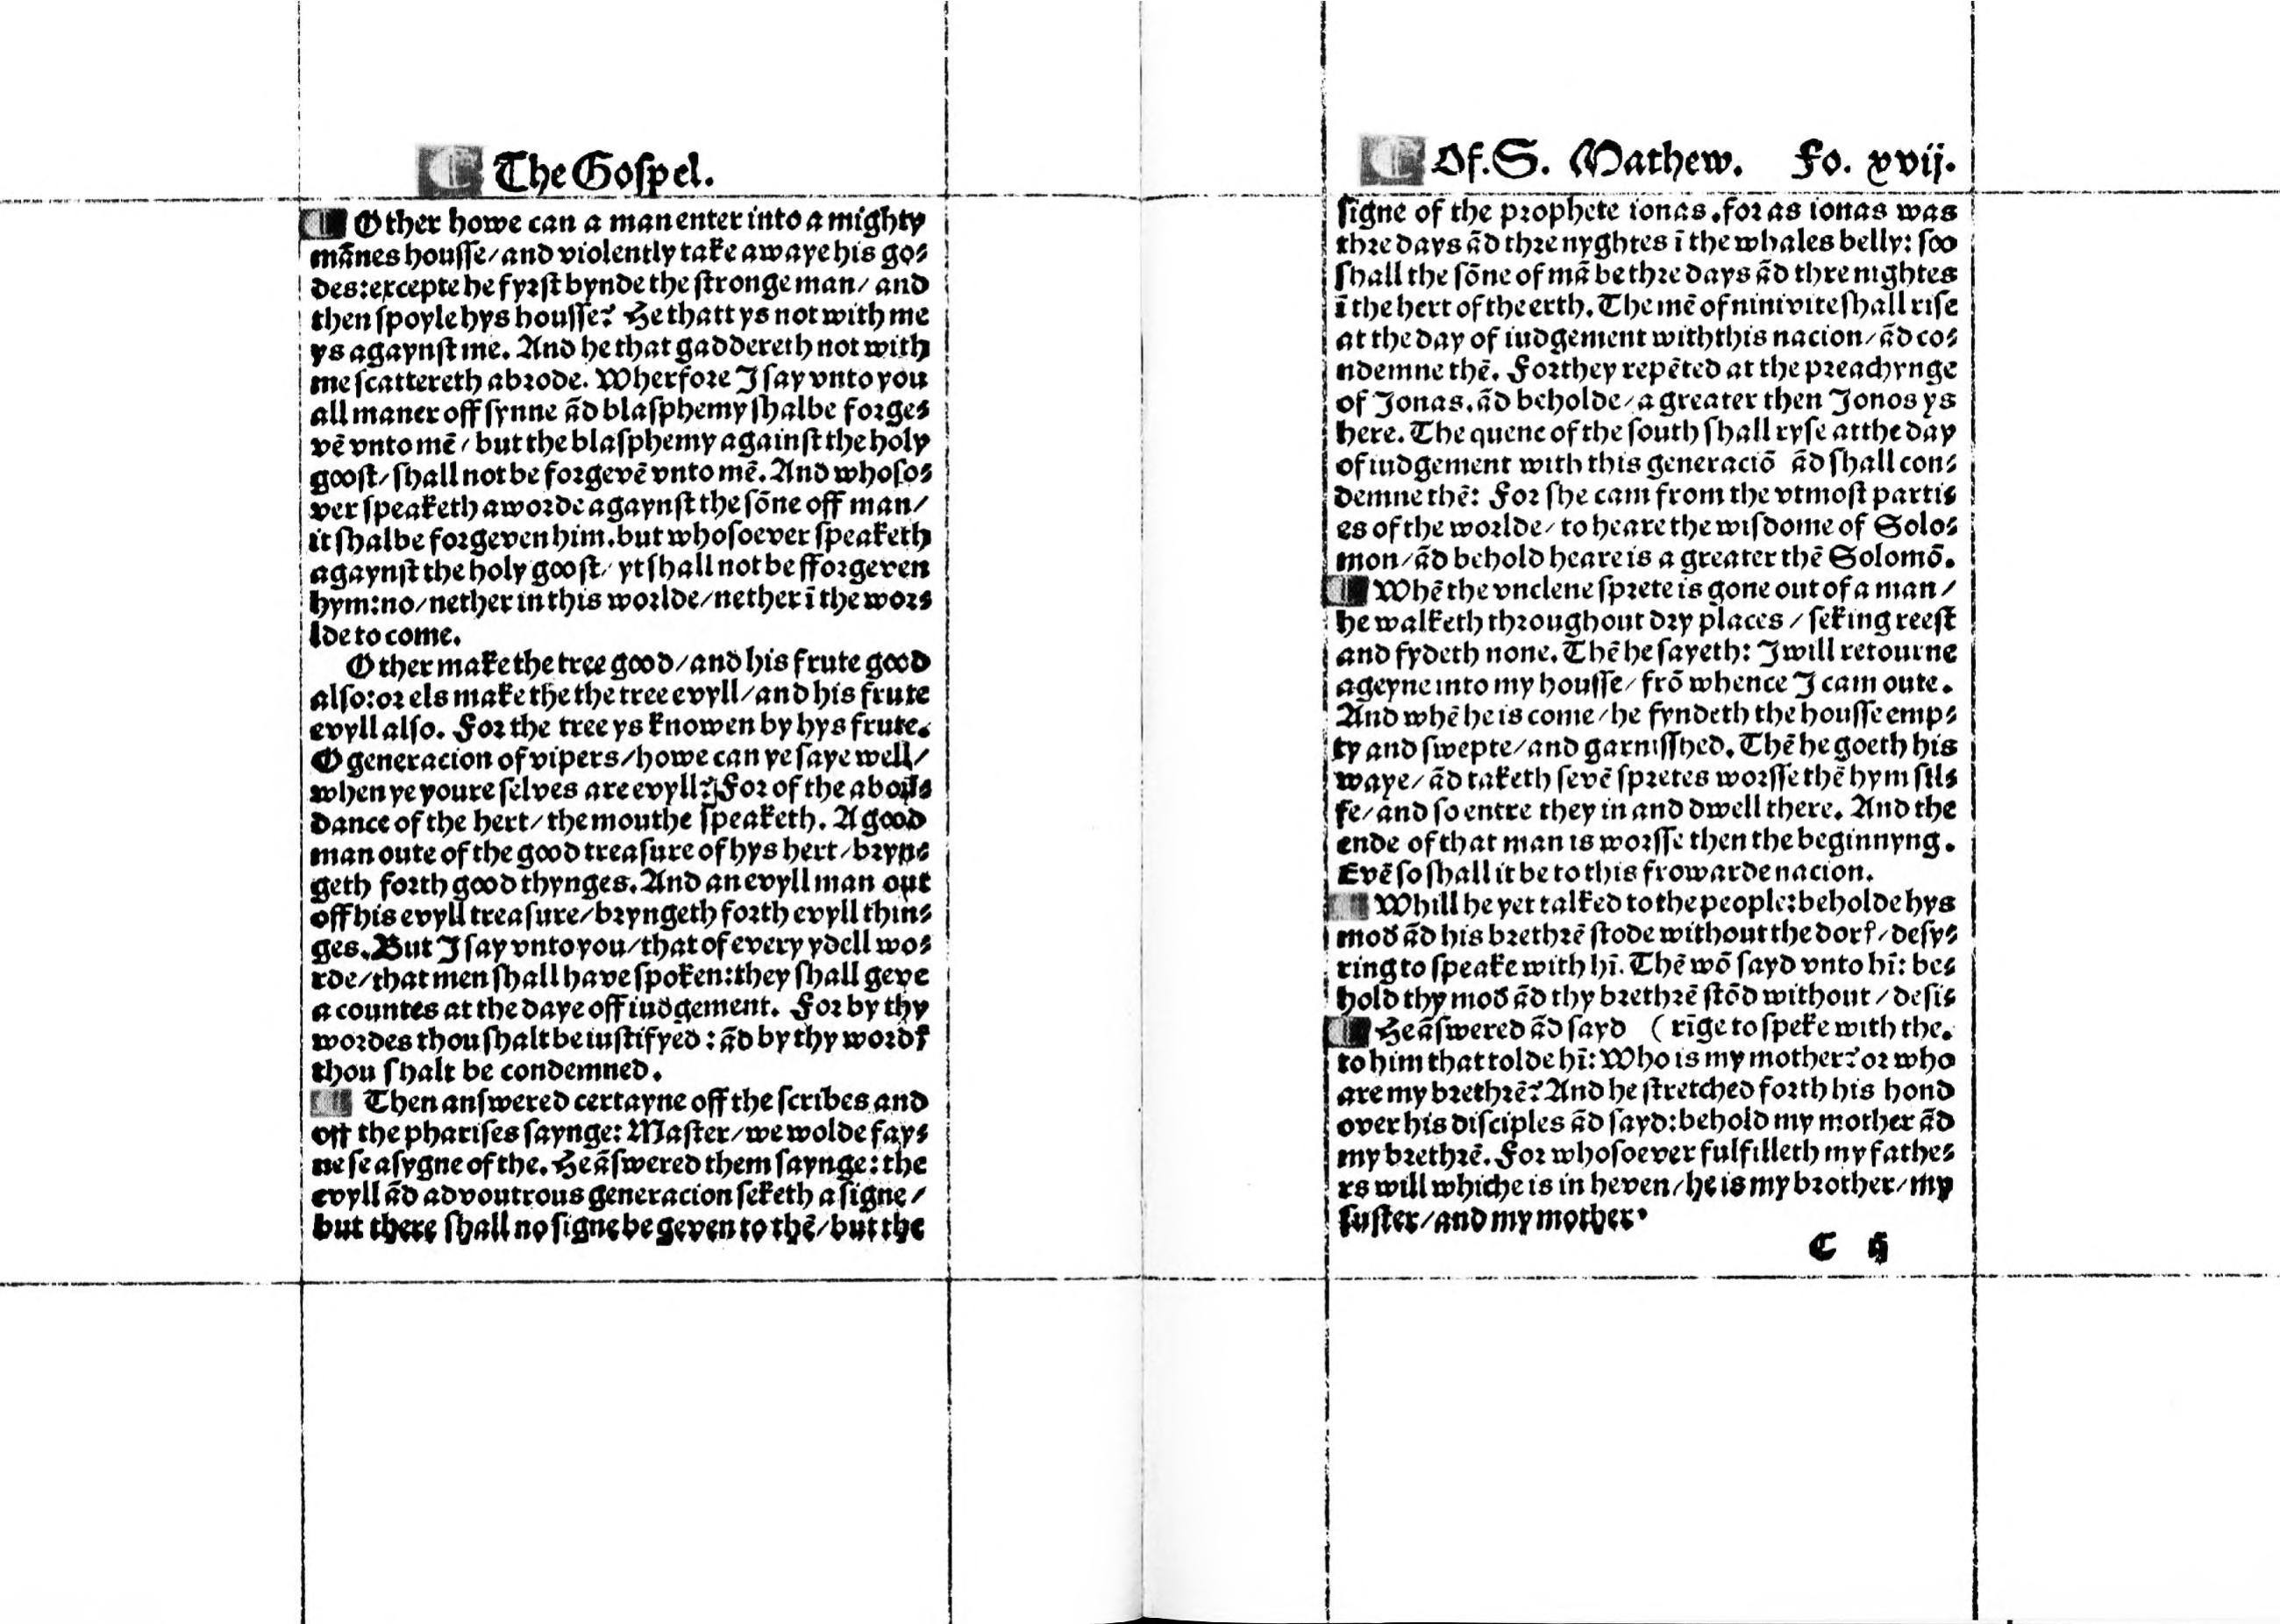 The Gospel.
Other howe can a man enter into a mighty
mānes housse/and violently take awaye his go⸗
des:excepte he fyrst bynde the stronge man/ and
then spoyle hys housse? He thatt ys not with me
ys agaynst me. And he that gaddereth not with
me scattereth abrode. Wherfore I say vnto you
all maner off synne ād blasphemy shalbe forge⸗
vē vnto mē/ but the blasphemy against the holy
goost/ shall not be forgevē vnto mē. And whoso⸗
ver speaketh a worde agaynst the sōne off man/
it shalbe forgeven him. but whosoever speaketh
agaynst the holy goost/ yt shall not be fforgeven
hym:no/nether in this worlde/nether ī the wor⸗
lde to come.
Other make the tree good/and his frute good
also:or els make the the tree evyll/and his frute
evyll also. For the tree ys knowen by hys frute.
O generacion of vipers/howe can ye saye well/
when ye youre selves are evyll? For of the aboū⸗
dance of the hert/ the mouthe speaketh. A good
man oute of the good treasure of hys hert/bryn⸗
geth forth good thynges. And an evyll man out
off his evyll treasure/bryngeth forth evyll thin⸗
ges. But I say vnto you/that of every ydell wo⸗
rde/that men shall have spoken:they shall geve
a countes at the daye off iudgement. For by thy
wordes thou shalt be iustifyed: ād by thy wordꝭ
thou shalt be condemned.
Then answered certayne off the scribes and
off the pharises saynge: Master/we wolde fay⸗
ne se a sygne of the. He āswered them saynge: the
evyll ād advoutrous generacion seketh a signe/
but there shall no signe be geven to thē/but the
Of.S. Mathew. Fo. xvij.
signe of the prophete ionas. for as ionas was
thre days ād thre nyghtes ī the whales belly: soo
shall the sōne of mā be thre days ād thre nightes
ī the hert of the erth. The mē of ninivite shall rise
at the day of iudgement with this nacion/ād co⸗
ndemne thē. For they repēted at the preachynge
of Jonas. ād beholde/a greater then Jonos ys
here. The quene of the south shall ryse at the day
of iudgement with this generaciō ād shall con⸗
demne thē: For she cam from the vtmost parti⸗
es of the worlde/ to heare the wisdome of Solo⸗
mon/ād behold heare is a greater thē Solomō.
Whē the vnclene sprete is gone out of a man/
he walketh throughout dry places/ seking reest
and fydeth none. Thē he sayeth: I will retourne
ageyne into my housse/ frō whence I cam oute.
And whē he is come/he fyndeth the housse emp⸗
ty and swepte/and garnisshed. Thē he goeth his
waye/ ād taketh sevē spretes worsse thē hym sil⸗
fe/and so entre they in and dwell there. And the
ende of that man is worsse then the beginnyng.
Evē so shall it be to this frowarde nacion.
Whill he yet talked to the people:beholde hys
moď ād his brethrē stode without the dorꝭ/desy⸗
ring to speake with hī. Thē wō sayd vnto hī: be⸗
hold thy moď ād thy brethrē stōd without/desi⸗
He āswered ād sayd (rīge to speke with the.
to him that tolde hī: Who is my mother? or who
are my brethrē? And he stretched forth his hond
over his disciples ād sayd:behold my mother ād
my brethrē. For whosoever fulfilleth my fathe⸗
rs will whiche is in heven/he is my brother/my
suster/and my mother.
C ij